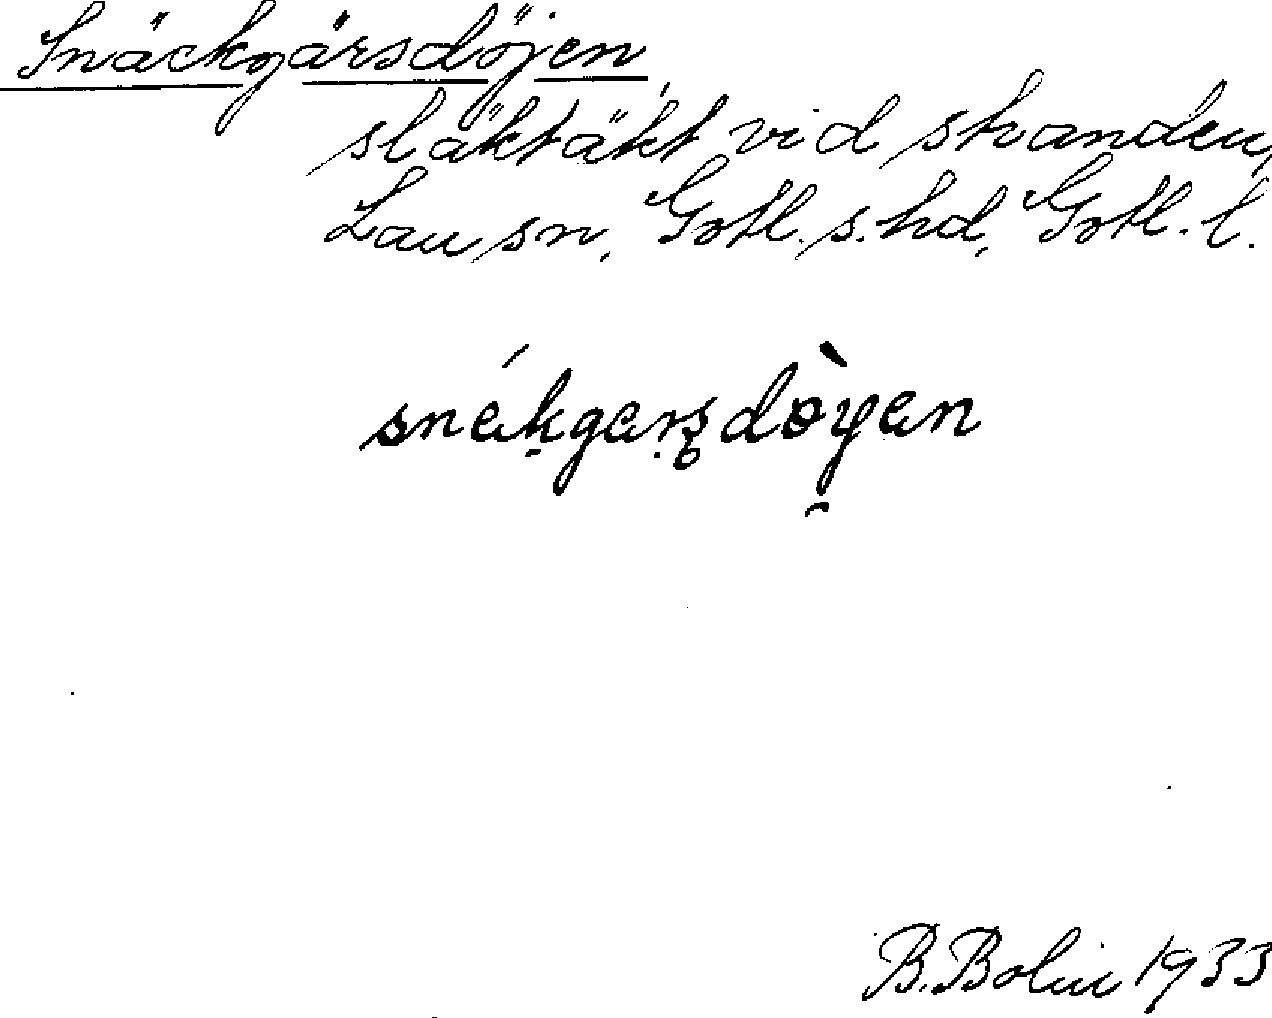 Snäckgärsdöjen,
släktäkt vid stranden,
Lau sn, Gotl. s. hd, Gotl. l.
snékgaṛsdòyen
B. Bolin 1933